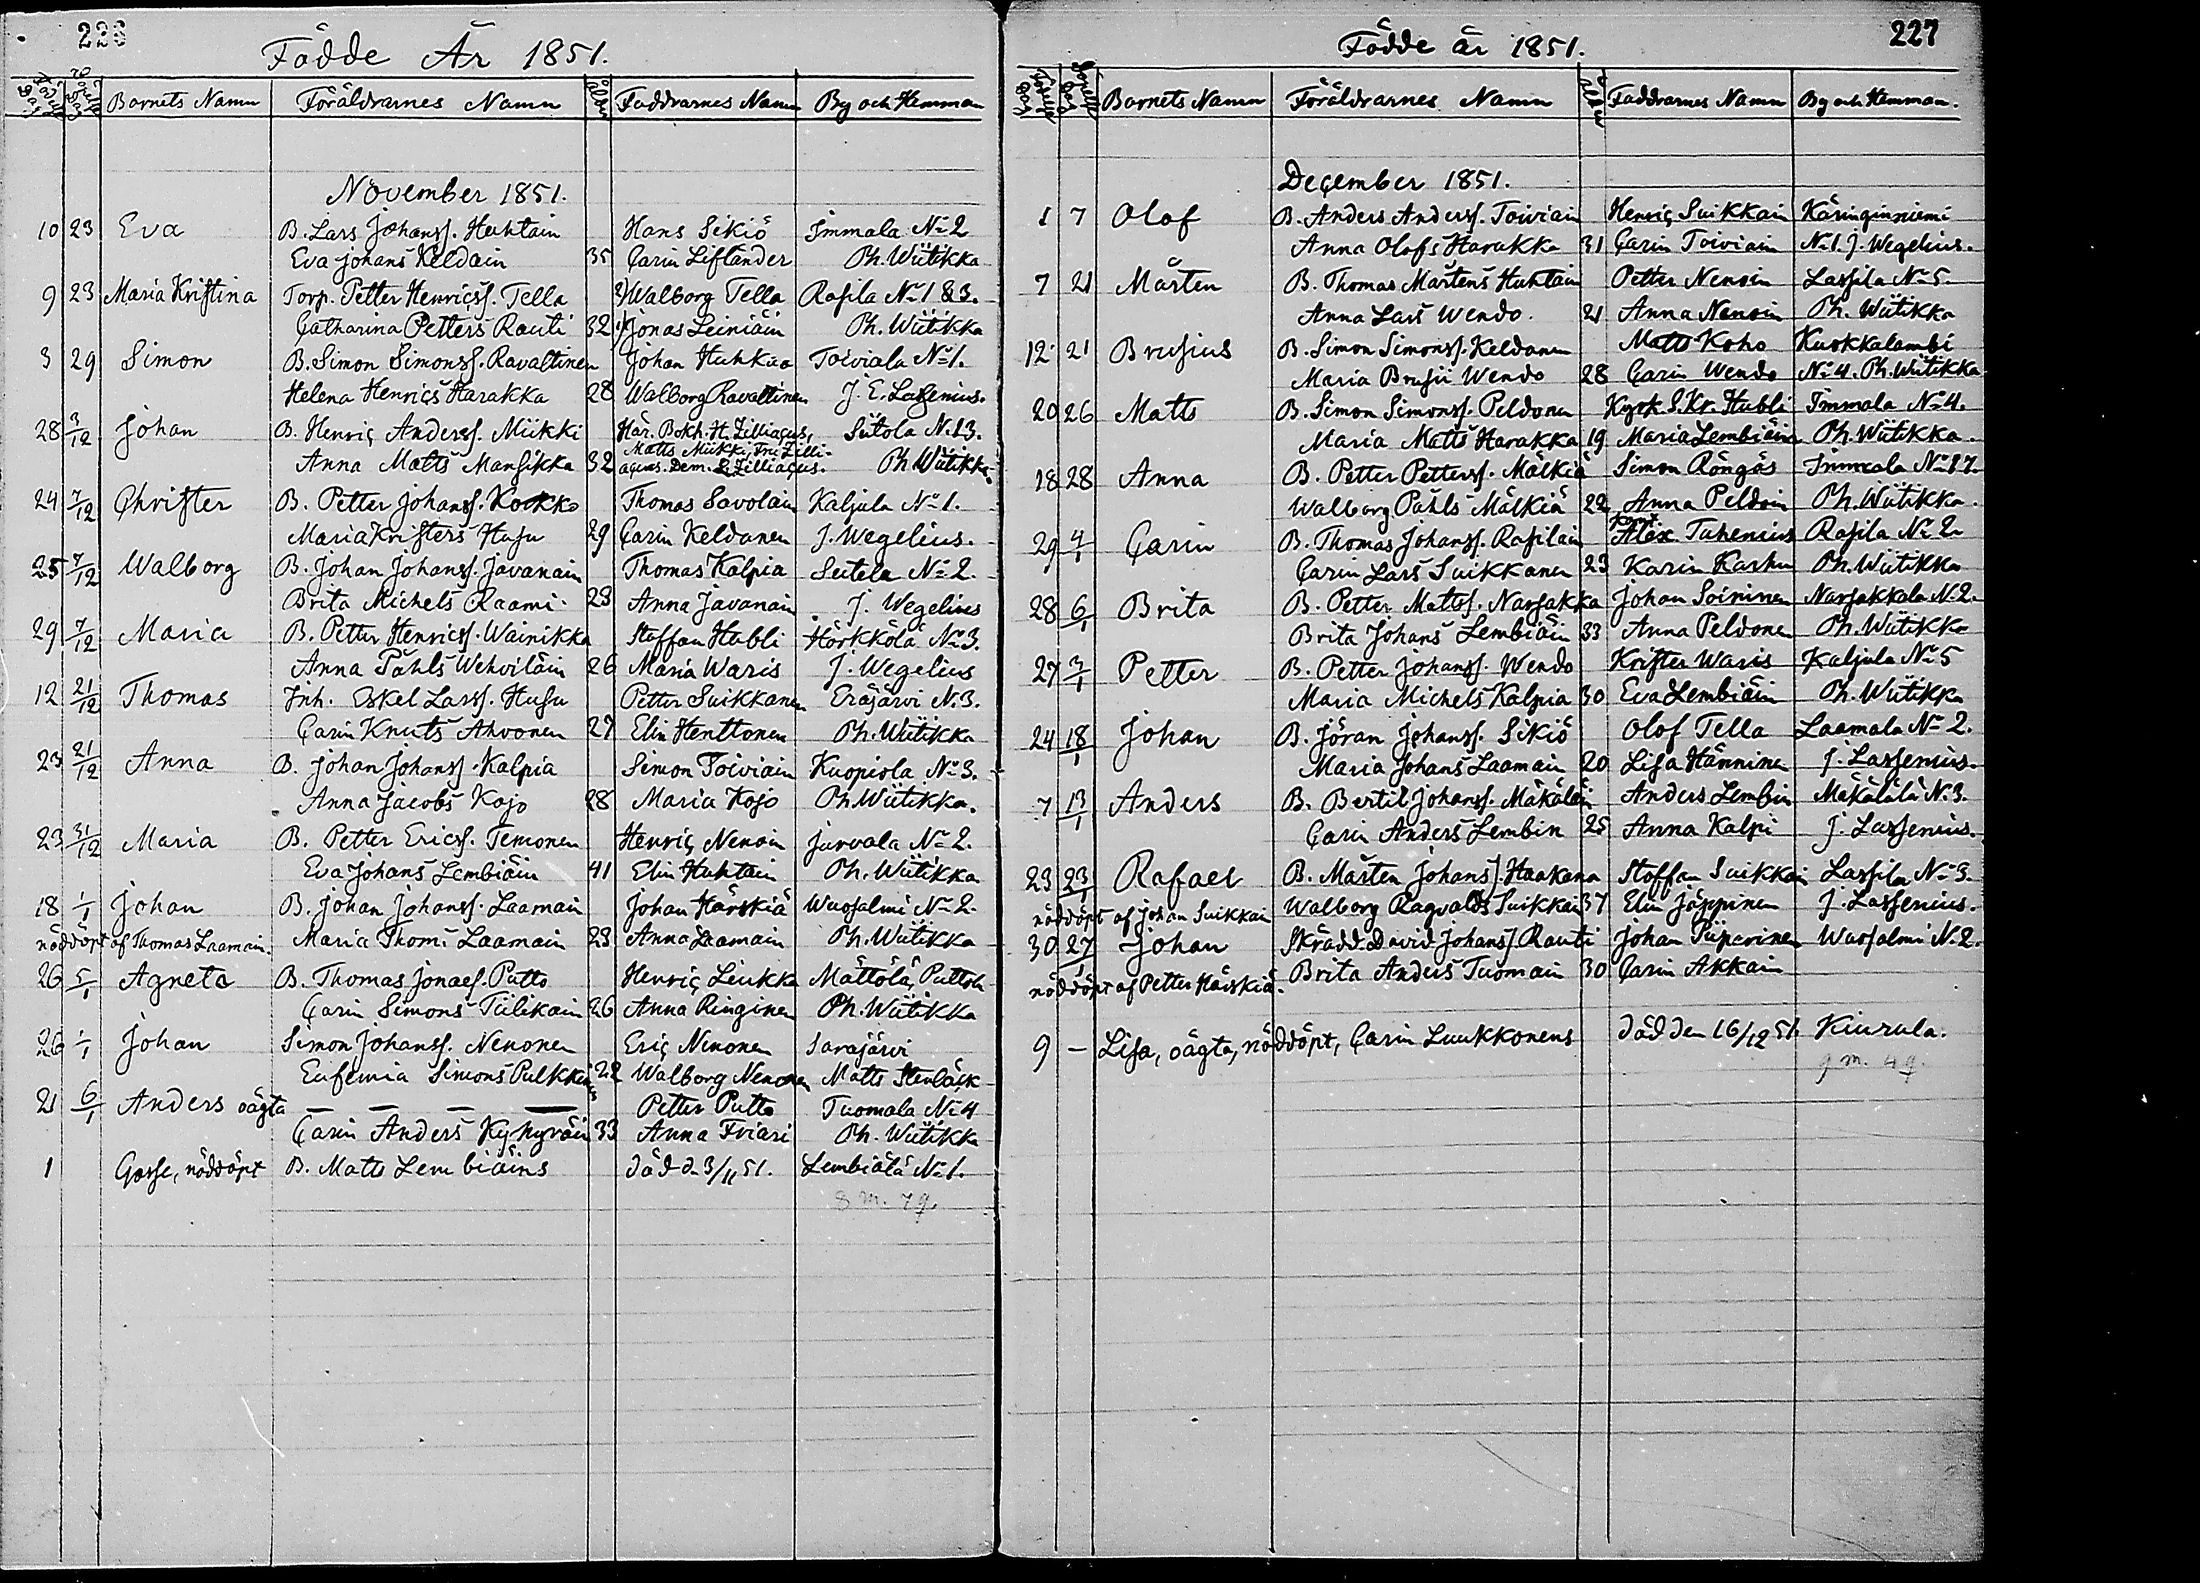 226
Födde År 1851.
Barnets Namn Föräldrarnes Namn Faddrarnes Namn By och Hemman
November 1851.
10 23 Eva B. Lars Johanss. Huhtain Hans Sikiö Jmmala No 2
Eva Johans Keldain 35 Carin Liflander Ph. Wiitikka
9 23 Maria Kristina Torp. Petter Henricss. Tella Walborg Tella Rasila No 1 & 3.
Catharina Petters Rauti 32 Jonas Leiniäin Ph. Wiitikka
3 29 Simon B. Simon Simonss. Ravaltinen Johan Huhkaa Toiviala No 1.
Helena Henrics Harakka 28 Walborg Ravaltinen J. E. Lassenius.
28 3/12 Johan B. Henric Anderss. Miikki Här. Bokh. H. Zilliacus, Siitola N. 13.
Matts Miikki, Fru Zilli-
Anna Matts Mansikka 32 acus. Dem. Zilliacus. Ph Wiitikka
24 7/12 Christer B. Petter Johanss. Korkko Thomas Savolain Kaljula No 1.
Maria Kristers Husu 29 Carin Keldanen J. Wegelius.
25 7/12 Walborg B. Johan Johanss. Javanain Thomas Kalpia Seitola No 2.
Brita Michels Raami 23 Anna Javanain J. Wegelius
29 7/12 Maria B. Petter Henricss. Wainikka Staffan Hubli Hörkkölä No 3.
Anna Påhls Wehviläin 26 Maria Waris J. Wegelius
12 21/12 Thomas Jnh. Eskel Larss. Husu Petter Suikkanen Eräjärvi N. 3.
Carin Knuts Ahvonen 27 Elin Henttonen Ph. Wiitikka
23 21/12 Anna B. Johan Johanss. Kalpia Simon Toiviain Kuopiola No 3.
Anna Jacobs Kojo 28 Maria Kojo Ph Wiitikka.
23 31/12 Maria B. Petter Ericss. Temonen Henric Nenoin Jurvala No 2.
Eva Johans Lembiäin 41 Elin Huhtain Ph. Wiitikka
18 1/1 Johan B. Johan Johanss. Laamain Johan Härskiä Wuosalmi No 2.
nöddöpt af Thomas Laamain. Maria Thoms Laamain 23 Anna Laamain Ph. Wiitikka
26 5/1 Agneta B. Thomas Jonaes. Putto Henric Liukka Mättölä, Puttola
Carin Simons Tiilikain 26 Anna Ringinen Ph. Wiitikka
26 1/1 Johan Simon Johanss. Nenonen Eric Nenonen Sarajärvi
Eufemia Simons Pulkkinen 22 Walborg Nenonen Matts Stenbäck
21 6/1 Anders oägta — — — — Petter Putto Tuomala No 4
Carin Anders Kyhyräin 33 Anna Friari Ph. Wiitikka
1 Gosse, nöddöpt B. Matts Lembiäins död d. 3/11 51. Lembiälä No 1.
8 m. 7 q.
227
Födde år 1851.
Barnets Namn Föräldrarnes Namn Faddrarnes Namn By och Hemman.
December 1851.
1 7 Olof B. Anders Anderss. Toiviain Henric Suikkain Käringinniemi
Anna Olofs Harakka 31 Carin Toiviain No 1. J. Wegelius.
7 21 Mårten B. Thomas Mårtens Huhtain Petter Nenoin Lassila No 5.
Anna Lars Wendo. 21 Anna Nenoin Ph. Wiitikka
12 21 Brusius B. Simon Simonss. Keldanen Matts Koho Kuokkalambi
Maria Brusii Wendo 28 Carin Wendo No 4. Ph. Wiitikka
20 26 Matts B. Simon Simonss. Peldonen Kyrk. S. Kr. Hubli Jmmala No 4.
Maria Matts Harakka 19 Maria Lembiäin Ph. Wiitikka.
18 28 Anna B. Petter Petterss. Mälkiä Simon Röngäs Jmmala No 17.
Walborg Påhls Mälkiä 22 Anna Peldoin Ph. Wiitikka.
29 4/1 Carin B. Thomas Johanss. Rasilain Alex. Tuhenius Rasila No 2.
Carin Lars Suikkanen 23 Karin Karhu Ph. Wiitikka
28 6/1 Brita B. Petter Mattss. Narsakka Johan Soininen Narsakkala N. 2.
Brita Johans Lembiäin 33 Anna Peldonen Ph. Wiitikka
27 3/1 Petter B. Petter Johanss. Wendo Krister Waris Kaljula No 5
Maria Michels Kalpia 30 Eva Lembiäin Ph. Wiitikka
24 18/1 Johan B. Jöran Johanss. Sikiö Olof Tella Laamala No 2.
Maria Johans Laamain 20 Lisa Hänninen J. Lassenius.
7 13/1 Anders B. Bertil Johanss. Mäkäläin Anders Lembin Mäkälälä N. 3.
Carin Anders Lembin 25 Anna Kalpi J. Lassenius.
23 23/1 Rafael B. Mårten Johanss. Haakana Staffan Suikkain Lassila No 3.
nöddöpt af Johan Suikkain Walborg Ragvalds Suikkain 37 Elin Jäppinen J. Lassenius.
30 27/1 Johan Skrädd. David Johanss. Rauti Johan Piiparinen Wuosalmi N. 2.
nöddöpt af Petter Härskiä. Brita Anders Tuomain 30 Carin Akkain
9 — Lisa, oägta, nöddöpt, Carin Luukkonens död den 16/12 51. Kiurula.
9 m. 4 q.